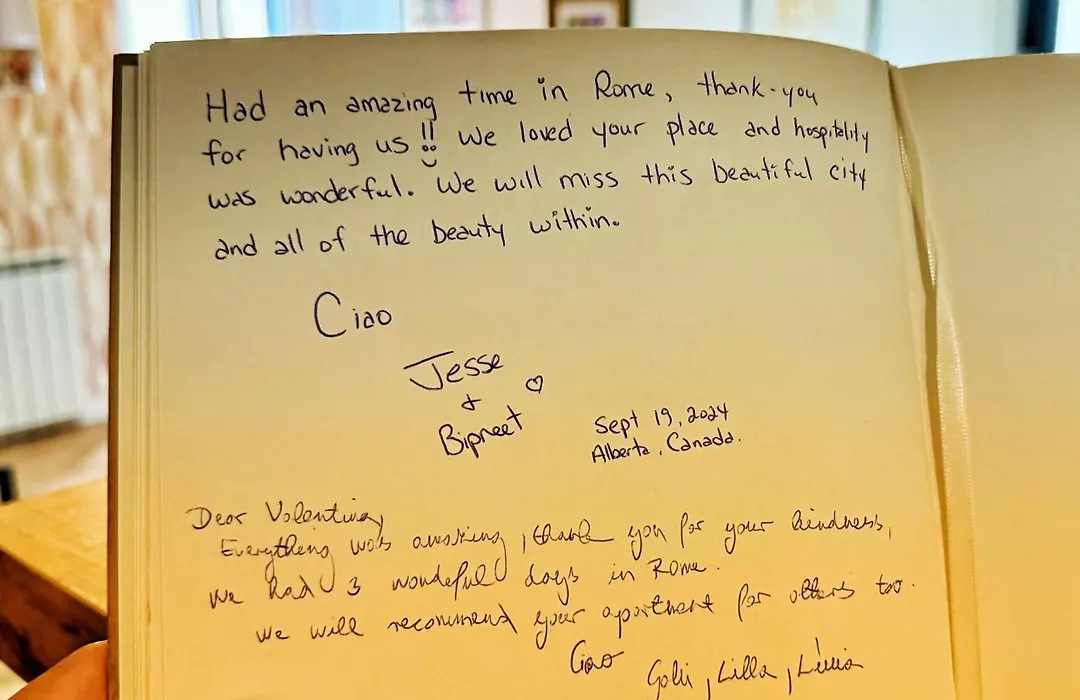 Had an amazing time in Rome, thank-you
for having us!! We loved your place and hospitality
was wonderful. We will miss this beautiful city
and all of the beauty within.
Ciao
Jesse
+
Bipneet ♡
Sept 19, 2024
Alberta, Canada.
Dear Valentina,
Everything was amazing, thank you for your kindness,
we had 3 wondeful days in Rome.
We will recommend your apartment for others too.
Ciao
Lilla,